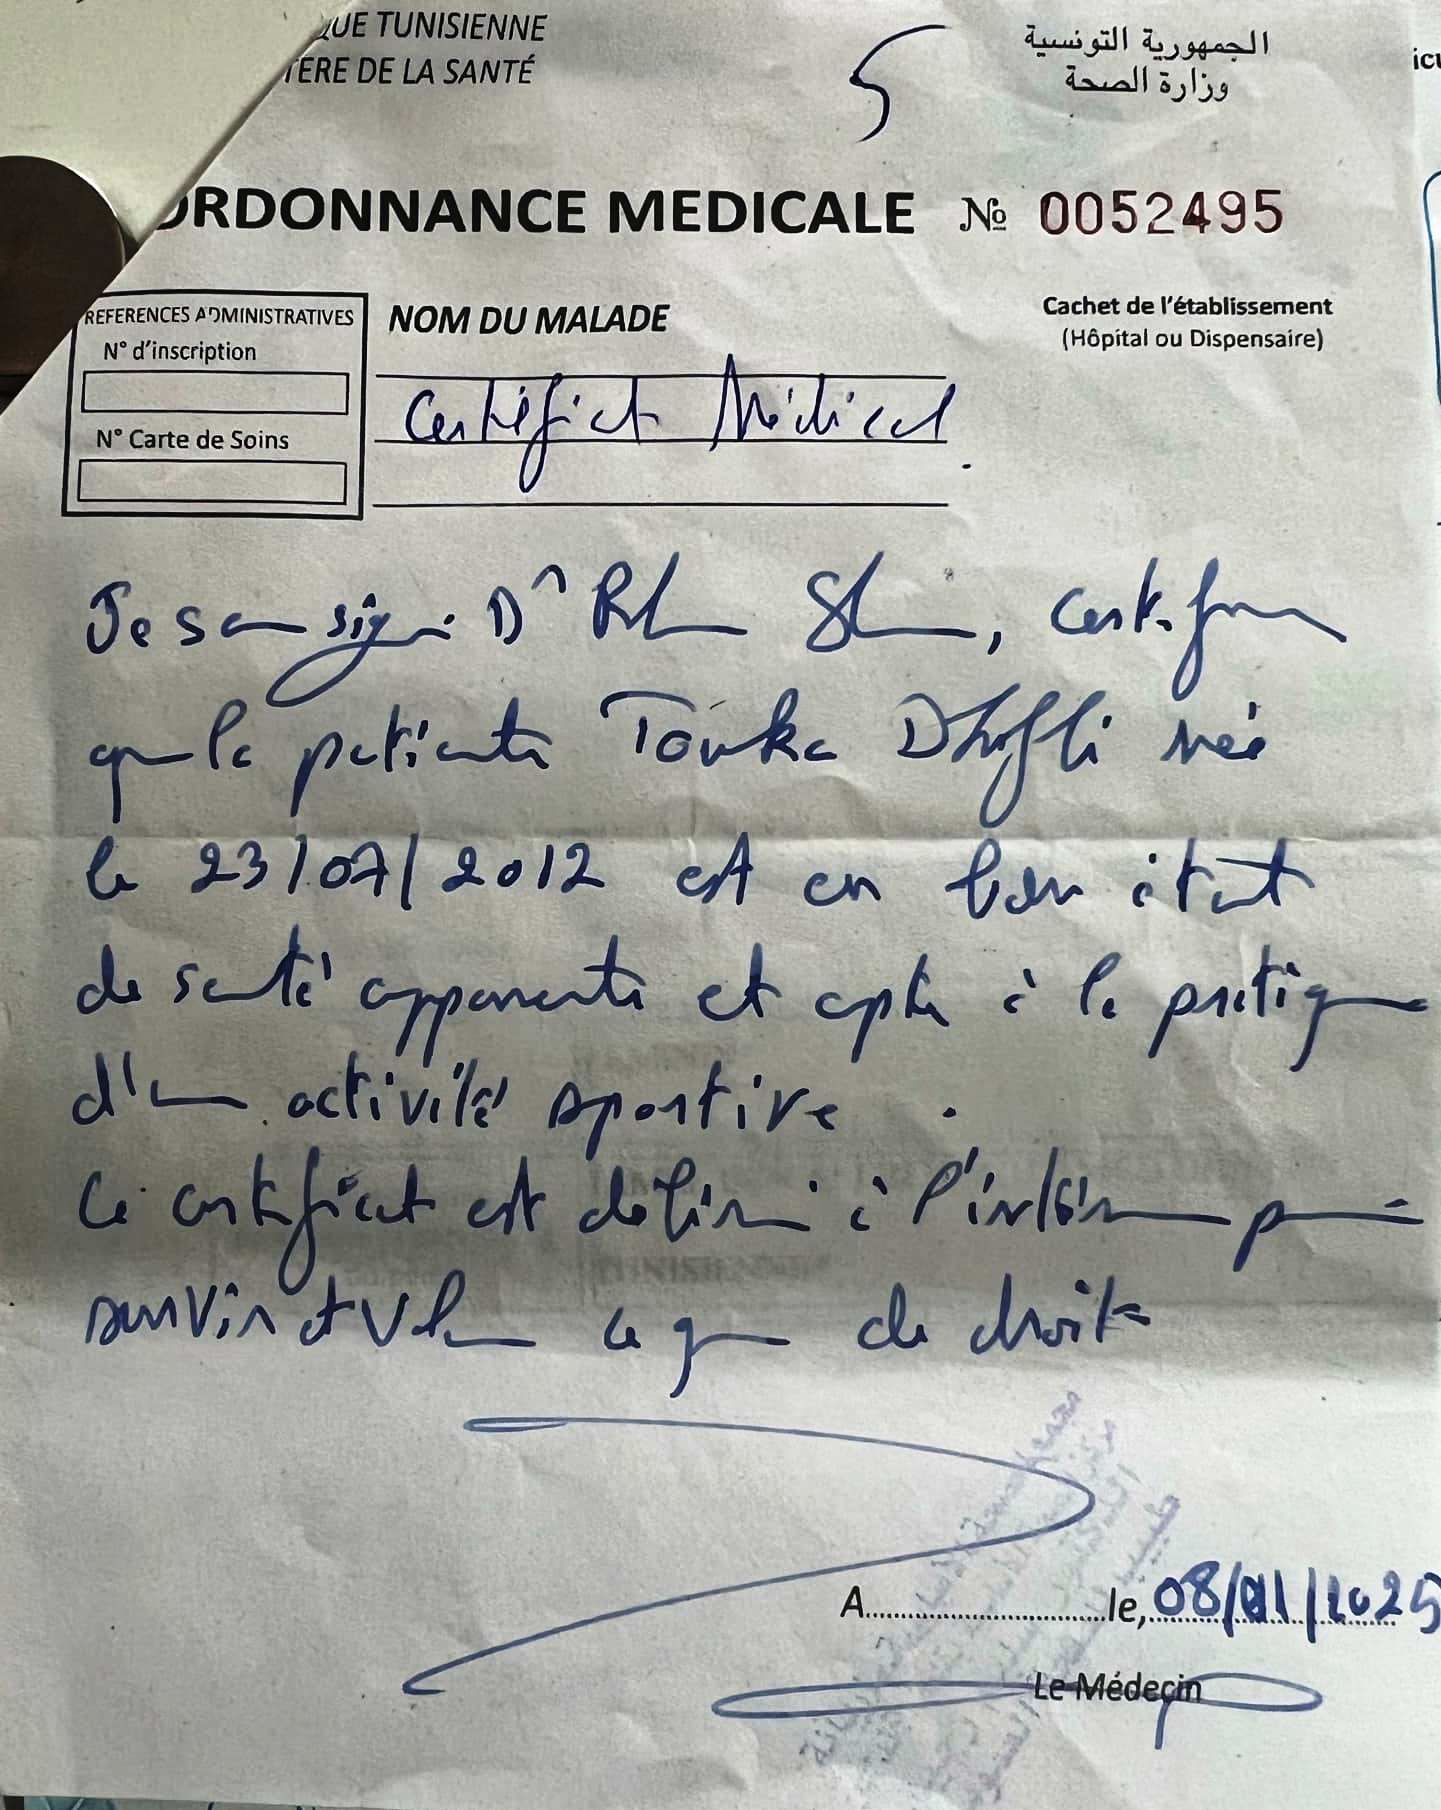 QUE TUNISIENNE
TERE DE LA SANTÉ
الجمهورية التونسية
وزارة الصحة
ORDONNANCE MEDICALE № 0052495
REFERENCES ADMINISTRATIVES
N° d'inscription
N° Carte de Soins
NOM DU MALADE
Cachet de l'établissement
(Hôpital ou Dispensaire)
Certificat Médical
Je soussigné Dr, certifie
que la patiente Touka née
le 23/07/2012 est en bon état
de santé apparente et apte à la pratique
d'une activité sportive.
Ce certificat est délivré à l'intéressée pour
servir et valoir ce que de droit
A..............................le, 08/01/2025
Le Médecin